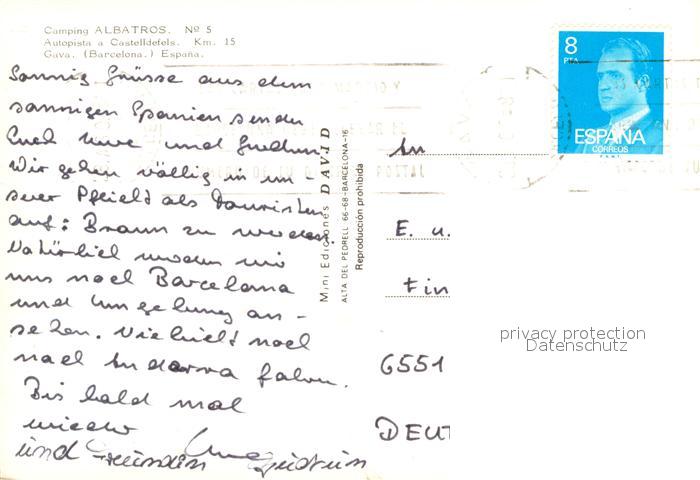 Camping ALBATROS. Nº 5
Autopista a Castelldefels. Km. 15
Gava. (Barcelona.) España.
Sonnige Grüsse aus dem
sonnigen Spanien senden
Euch Uwe und Gudrun.
Wir gehen völlig in un
serer Pflicht als Touristen
auf: Braun zu werden.
Natürlich wollen wir
uns noch Barcelona
und Umgebung an-
sehen. Vielleicht noch
nach Andorra fahren.
Bis bald mal
wieder
und Gudrun
Mini Ediciones DAVID
ALTA DEL PEDRELL 66-68-BARCELONA-16
Reproducción prohibida
8
PTA
ESPAÑA
CORREOS
F.N.M.T.
An
E. u.
Fin
6551
DEUT
privacy protection
Datenschutz